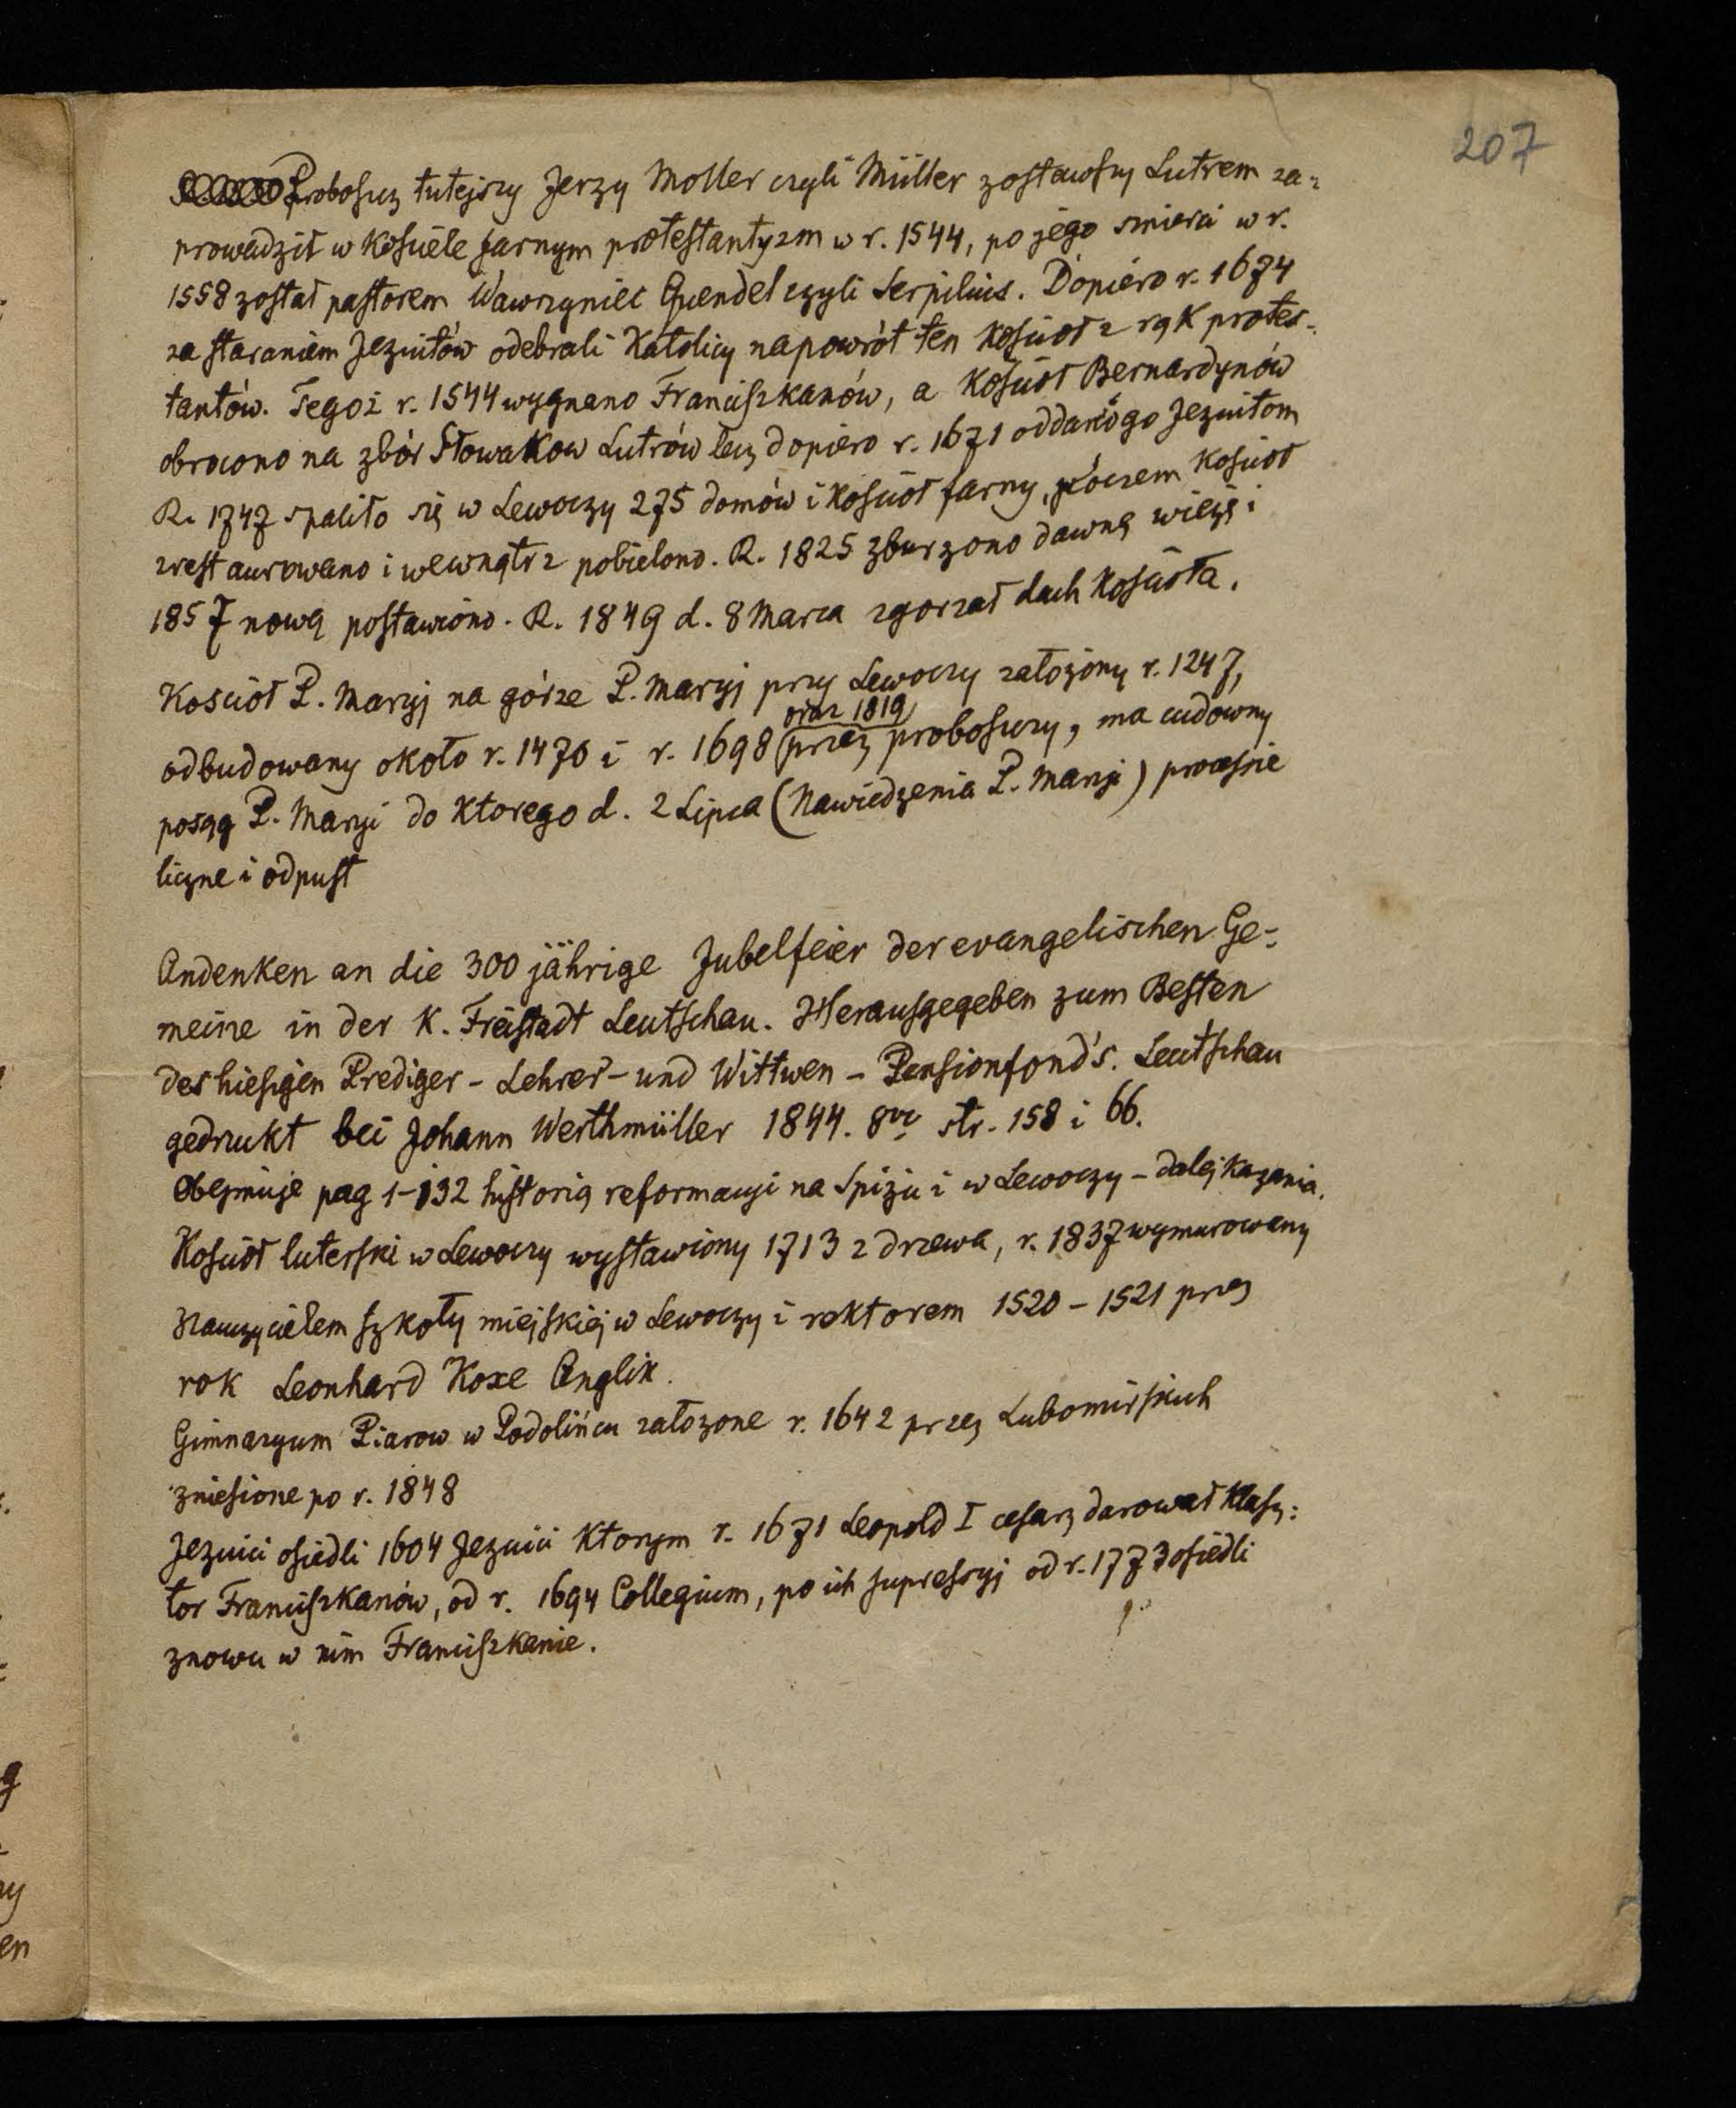 207
Proboszcz tutejszy Jerzy Moller czyli Müller zostawszy Lutrem za-
prowadził w kościele farnym protestantyzm w r. 1544, po jego smierci w r.
1558 został pastorem Wawrzyniec Quendel czyli Serpilius. Dopiéro r. 1674
za staraniem Jezuitów odebrali Katolicy napowrót ten kościoł z rąk protes-
tantów. Tegoż r. 1544 wygnano Franciszkanów, a kościoł Bernardynów
obrocono na zbór Słowakow Lutrów lecz dopiero r. 1671 oddano go Jezuitom
R. 1747 spaliło się w Lewoczy 275 domów i kościoł farny, poczem kościoł
zrestaurowano i wewnątrz pobielono. R. 1825 zburzono dawną wieżę i
1857 nową postawiono. R. 1849 d. 8 Marca zgorzał dach kościoła.
Kościoł P. Maryj na górze P. Maryj przy Lewoczy założony r. 1247,
oraz 1819
odbudowany około r. 1470 i r. 1698 przez proboszczy, ma cudowny
posąg P. Maryi do ktorego d. 2 Lipca (Nawiedzenia P. Maryi) processie
liczne i odpust
Andenken an die 300 jährige Jubelfeier der evangelischen Ge-
meine in der K. Freistadt Leutschau. Herausgegeben zum Besten
des hiesigen Prediger - Lehrer - und Wittwen - Pensionfond's. Leutschau
gedrukt bei Johann Werthmüller 1844. 8vo str. 158 i 66.
Obejmuje pag 1-132 historią reformacyi na Spiżu i w Lewoczy - dalej kazania.
Kościoł luterski w Lewoczy wystawiony 1713 z drzewa, r. 1837 wymurowany
Nauczycielem szkoły miejskiej w Lewoczy i rektorem 1520 - 1521 przez
rok Leonhard Koxe Anglik.
Gimnazyum Piarow w Podolińcu założone r. 1642 przez Lubomirskich
zniesione po r. 1848
Jezuici osiedli 1604 Jezuici ktorym r. 1671 Leopold I cesarz darował klasz:
tor Franciszkanów, od r. 1694 Collegium, po ich supressyj od r. 1773 osiedli
znowu w nim Franciszkanie.